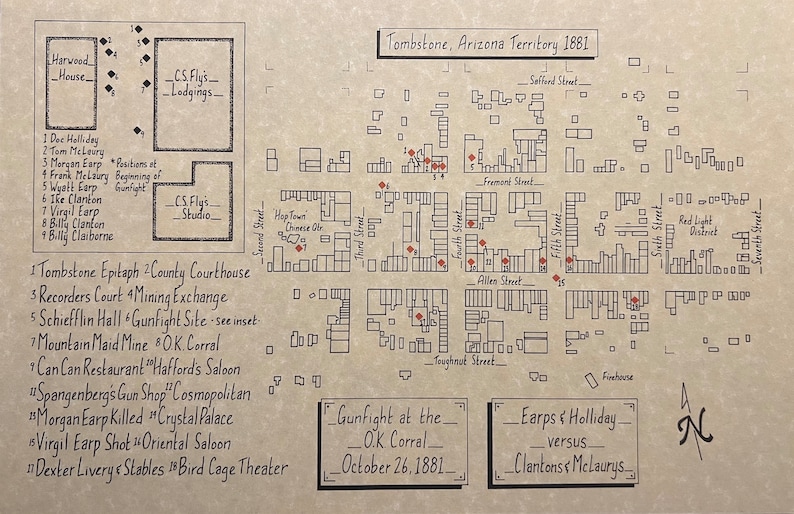 Tombstone, Arizona Territory 1881
Harwood House
C.S. Fly's Lodgings
C.S. Fly's Studio
1
2
3
4
5
6
7
8
9
1 Doc Holliday
2 Tom McLaury
3 Morgan Earp
4 Frank McLaury
5 Wyatt Earp
6 Ike Clanton
7 Virgil Earp
8 Billy Clanton
9 Billy Claiborne
*Positions at
Beginning of
Gunfight
1 Tombstone Epitaph 2 County Courthouse
3 Recorders Court 4 Mining Exchange
5 Schiefflin Hall 6 Gunfight Site - see inset -
7 Mountain Maid Mine 8 O.K. Corral
9 Can Can Restaurant 10 Hafford's Saloon
11 Spangenberg's Gun Shop 12 Cosmopolitan
13 Morgan Earp Killed 14 Crystal Palace
15 Virgil Earp Shot 16 Oriental Saloon
17 Dexter Livery & Stables 18 Bird Cage Theater
Safford Street
Fremont Street
Allen Street
Toughnut Street
Second Street
Third Street
Fourth Street
Fifth Street
Sixth Street
Seventh Street
Hop Town
Chinese Qtr.
Red Light
District
Firehouse
Gunfight at the
O.K. Corral
October 26, 1881
Earps & Holliday
versus
Clantons & McLaurys
N